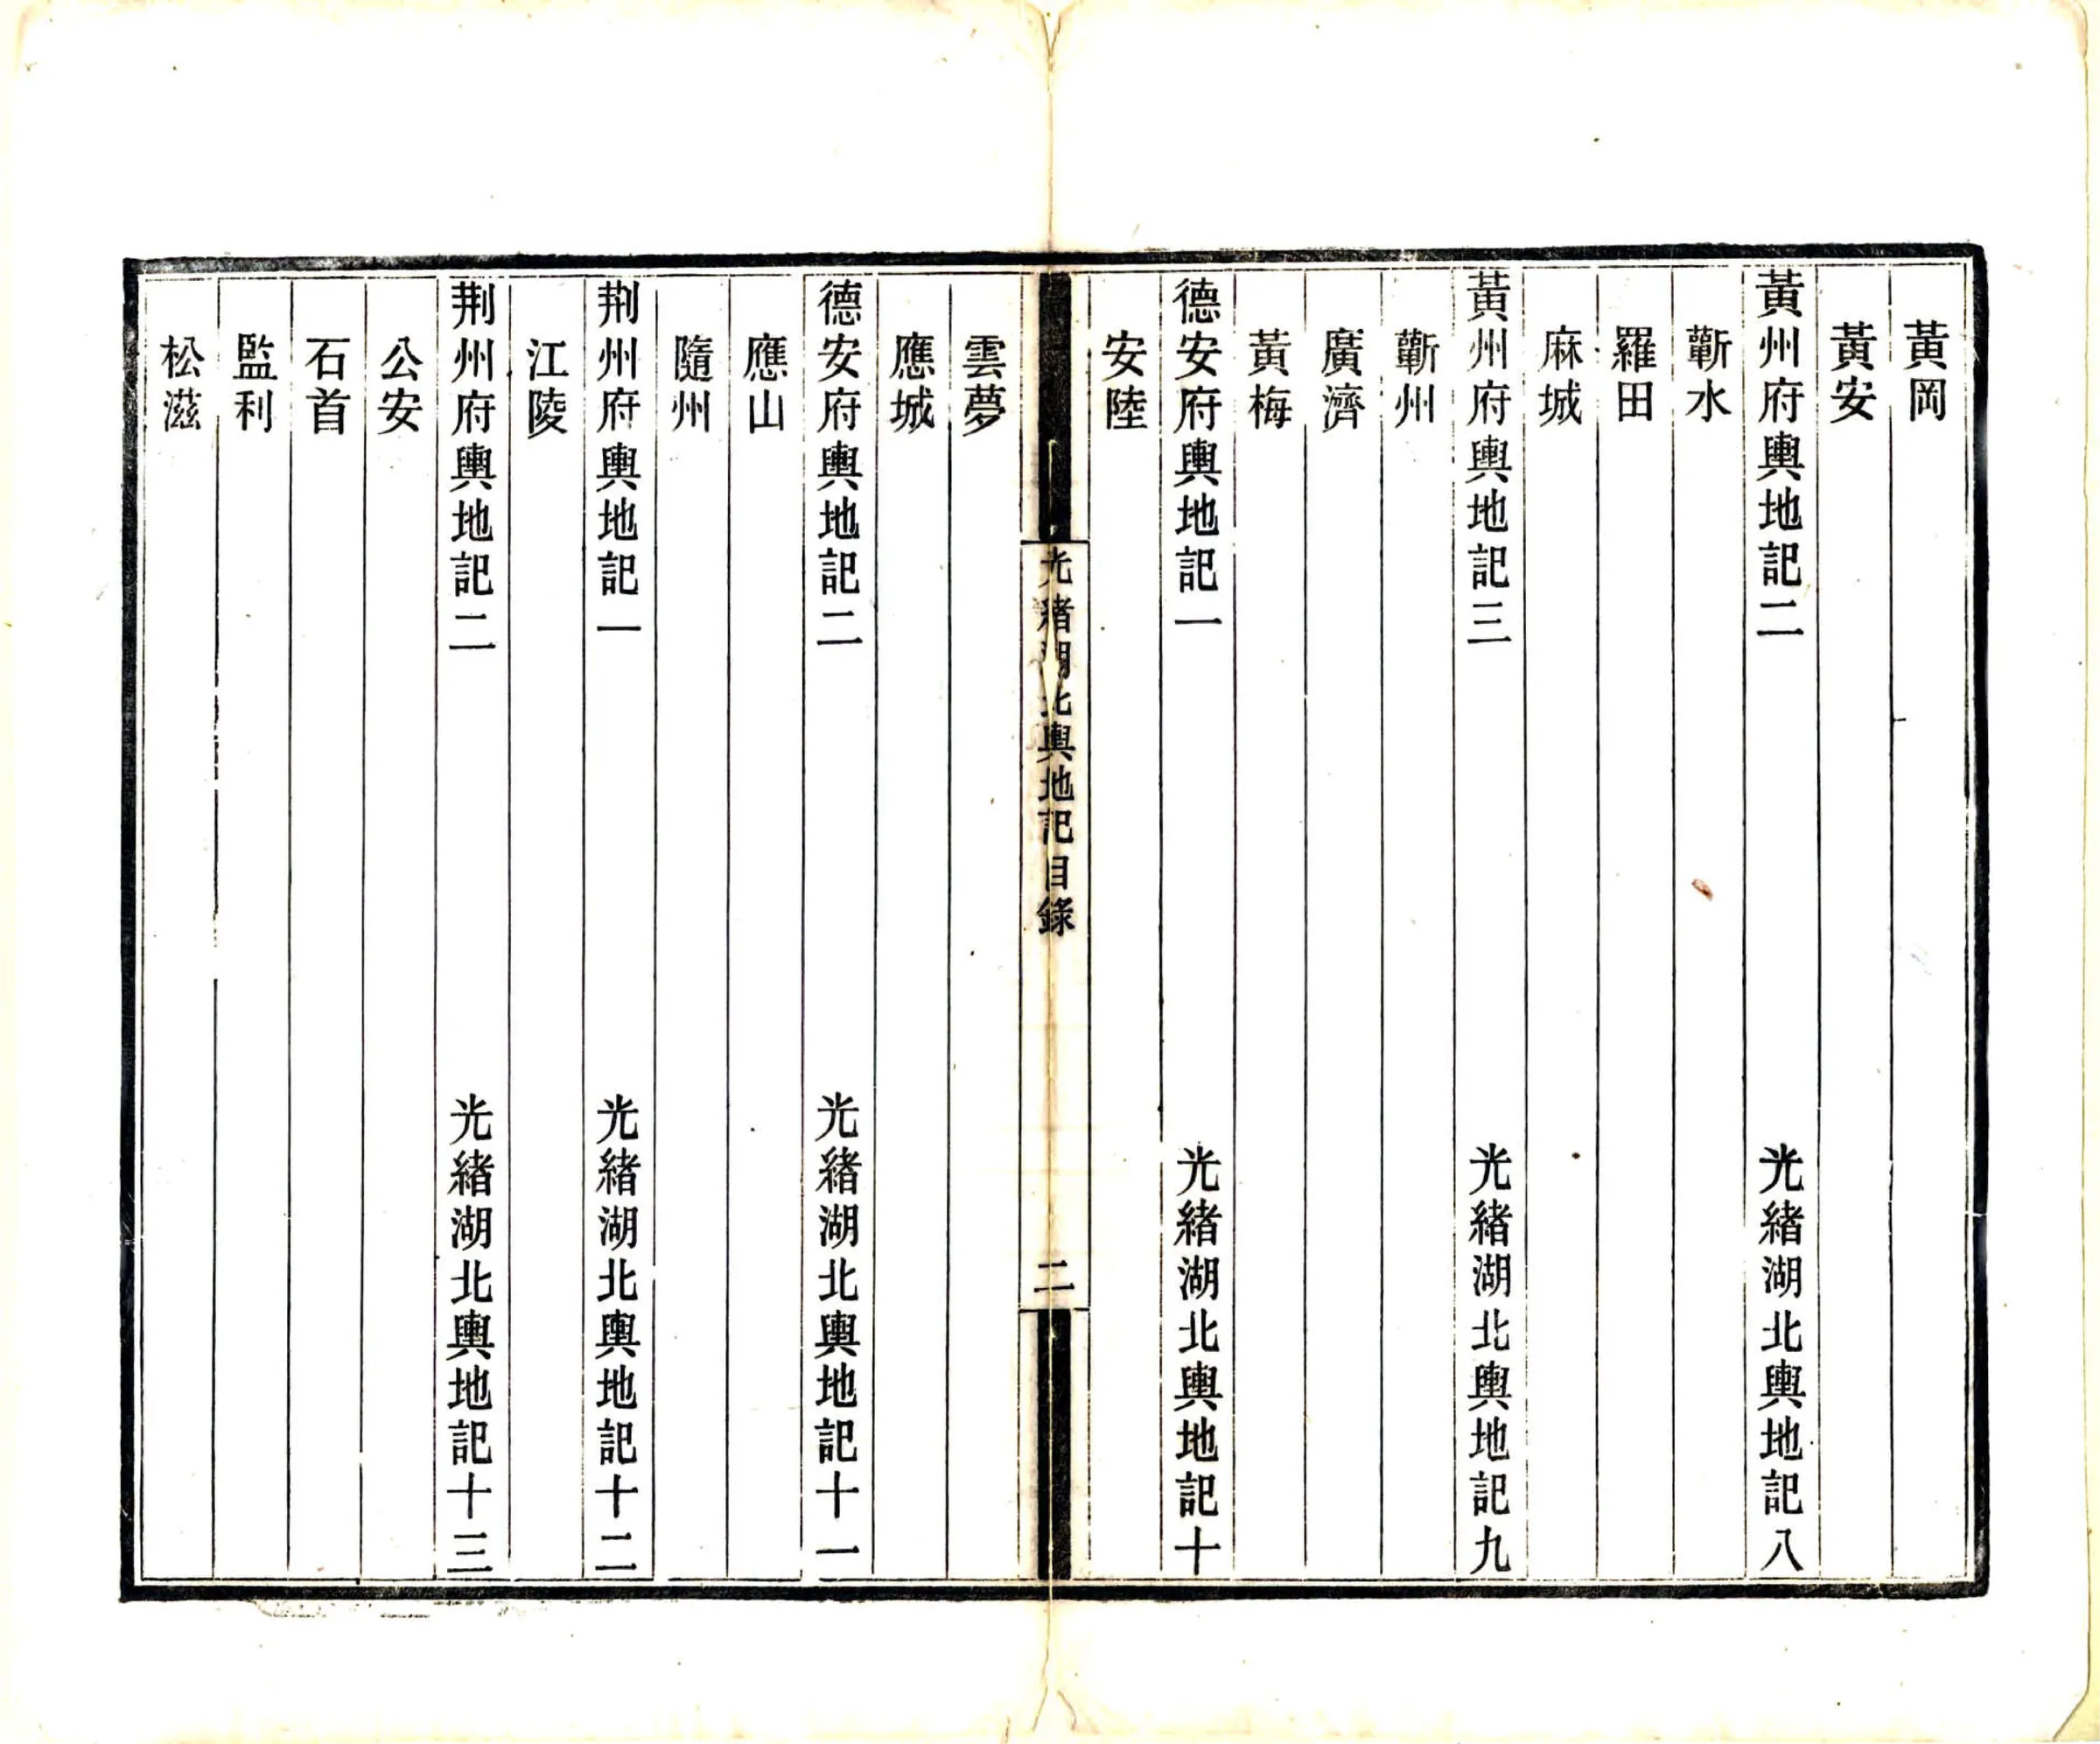 黃岡
黃安
黃州府輿地記二 光緒湖北輿地記八
蘄水
羅田
麻城
黃州府輿地記三 光緒湖北輿地記九
蘄州
廣濟
黃梅
德安府輿地記一 光緒湖北輿地記十
安陸
光緒湖北輿地記目錄 二
雲夢
應城
德安府輿地記二 光緒湖北輿地記十一
應山
隨州
荆州府輿地記一 光緒湖北輿地記十二
江陵
荆州府輿地記二 光緒湖北輿地記十三
公安
石首
監利
松滋